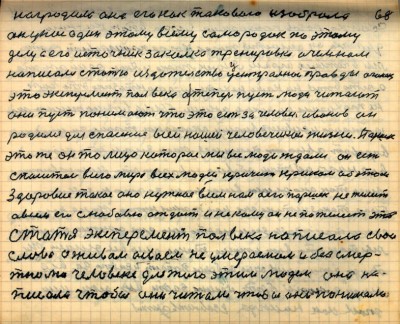 наградила она его как такового изобрала 68
он у ней один этому всему самородок по этому
делу а его источник закалка тренировка о чем нам
написала статью издательство центральной правды огонек
это эксперимент пол века а теперь пусть люди читают
они пусть понимают что это есть за человек иванов он
родился для спасение всей нашей человеческой жизни. Паршек
это те он то лицо которая мы все люди ждали он есть
спаситель всего мира всех людей кричит криком об этом
Здоровие такое оно нужное всем нам а его паршек не таит
а всем его с любовью отдает и некому он не потакает это
статья эксперемент пол века написала свои
слова оживаем а не умераемом и без смер-
тного человека для того этим людям она на-
писала чтобы они читали чтоб и они понимали